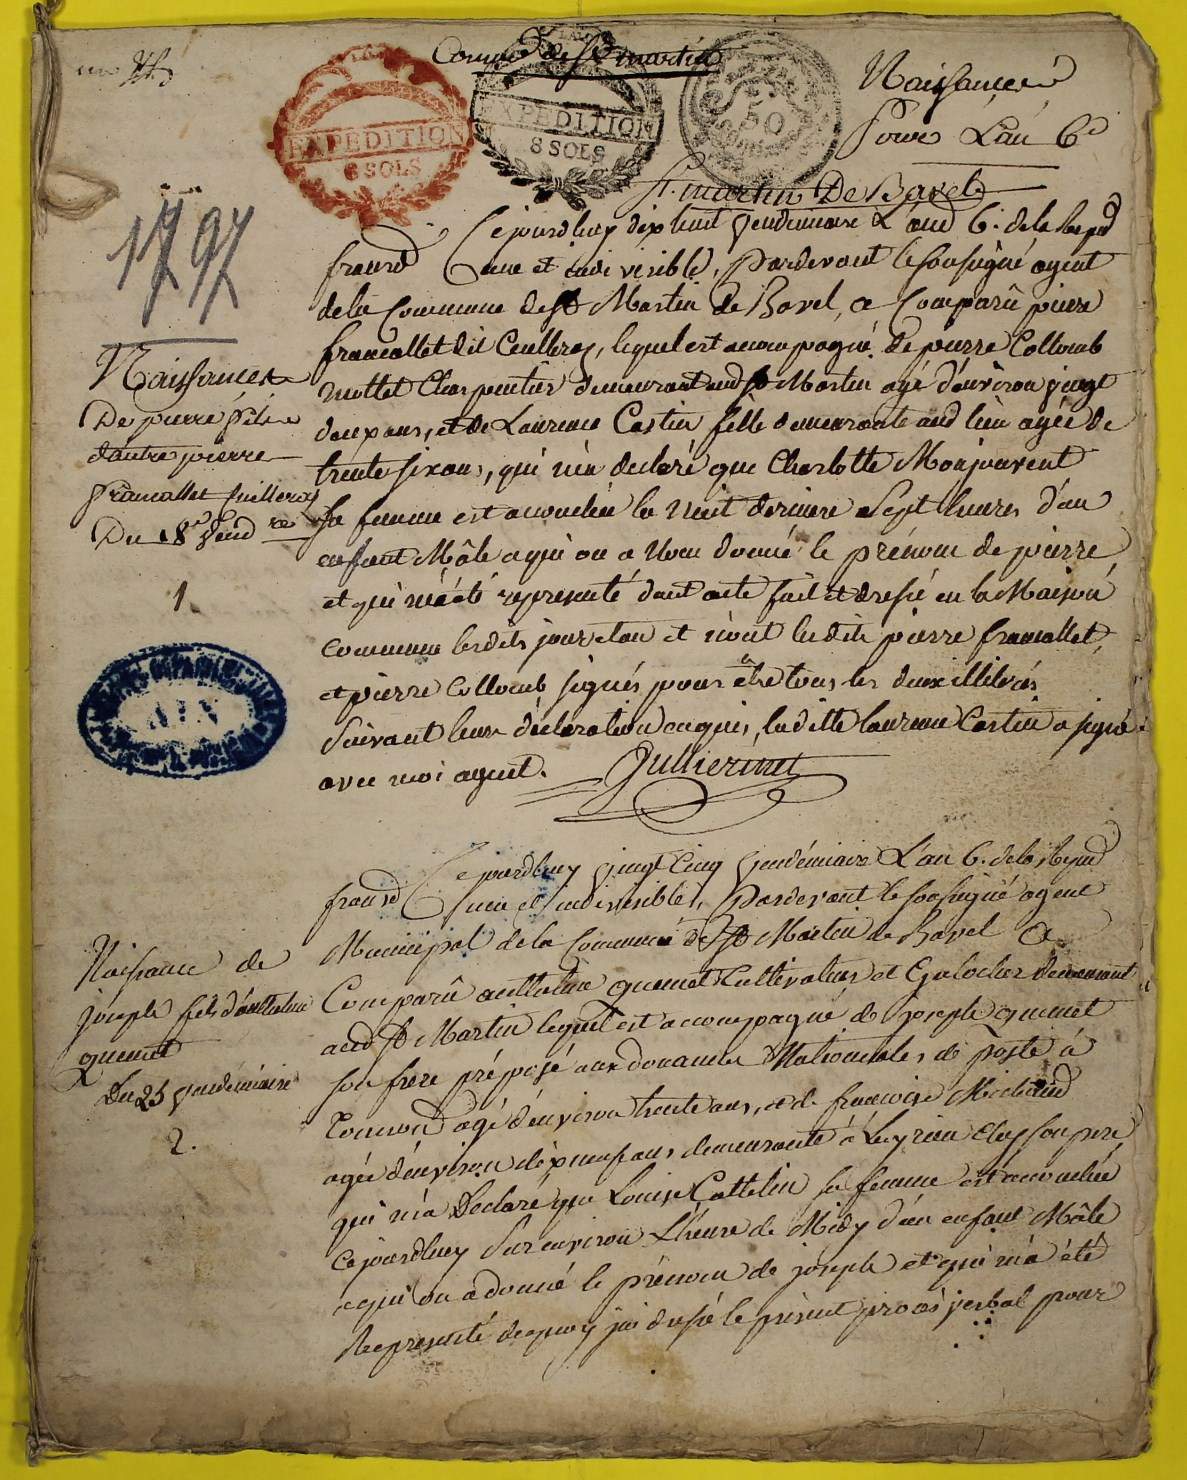 Commune de St martin
Naissances
Pour L'an 6e
EXPEDITION
8 SOLS
EXPEDITION
8 SOLS
50
St. martin De Bavel
1797
Cejourdhuy dix huit vendemiaire L'an 6. de la Repud
francd une et indivisible, Pardevant le soussigné agent
de la Commune de St Martin de Bavel, a Comparû pierre
francallet dit Cuilleroz, lequel est accompagné de pierre Colloub
mollet Charpentier demeurant aud St Martin agé d'environ vingt
deux ans, et de Laurence Castin fille demeurante aud lieu agée de
trente six ans, qui m'a declaré que Charlotte Monjouvent
sa femme est accouchée la nuit derniere a Sept heures d'un
enfant Mâle a qui on a donné le prénom de pierre
et qui m'a été representé dont acte fait et dressé en la Maison
commune lesdits jour et an et n'ont lesdits pierre francallet,
et pierre Colloub signés pour être tous les deux illiterés
Suivant leur déclaration enquis, ladite laurence Castin a signé
avec moi agent. Jullierme
Naissance
De pierre fils
d'autre pierre
francallet Cuilleroz
Du 18e vend re
1.
AIN
Cejourdhuy vingt cinq vendémiaire L'an 6. de la Repud
francd une et indivisible, Pardevant le soussigné agent
Municipal de la Commune de St Martin de Bavel a
Comparû anthelme guemet Cultivateur et Galocher demeurant
aud St Martin lequel est accompagné de joseph guemet
son frere préposé aux douannes Nationales de poste à
agé d'environ trente ans, et de francoise Michaud
agée d'environ dix neuf ans demeurante à Leyrieu chez son pere
qui m'a Declaré que Louise Cattelin sa femme est accouchée
cejourdhuy Sur environ L'heure de Midy d'un enfant Mâle
a qui on a donné le prénom de joseph et qui m'a été
Representé de quoy jai dressé le présent procès verbal pour
Naissance de
joseph fils d'anthelme
guemet
Du 25 vendémiaire
2.